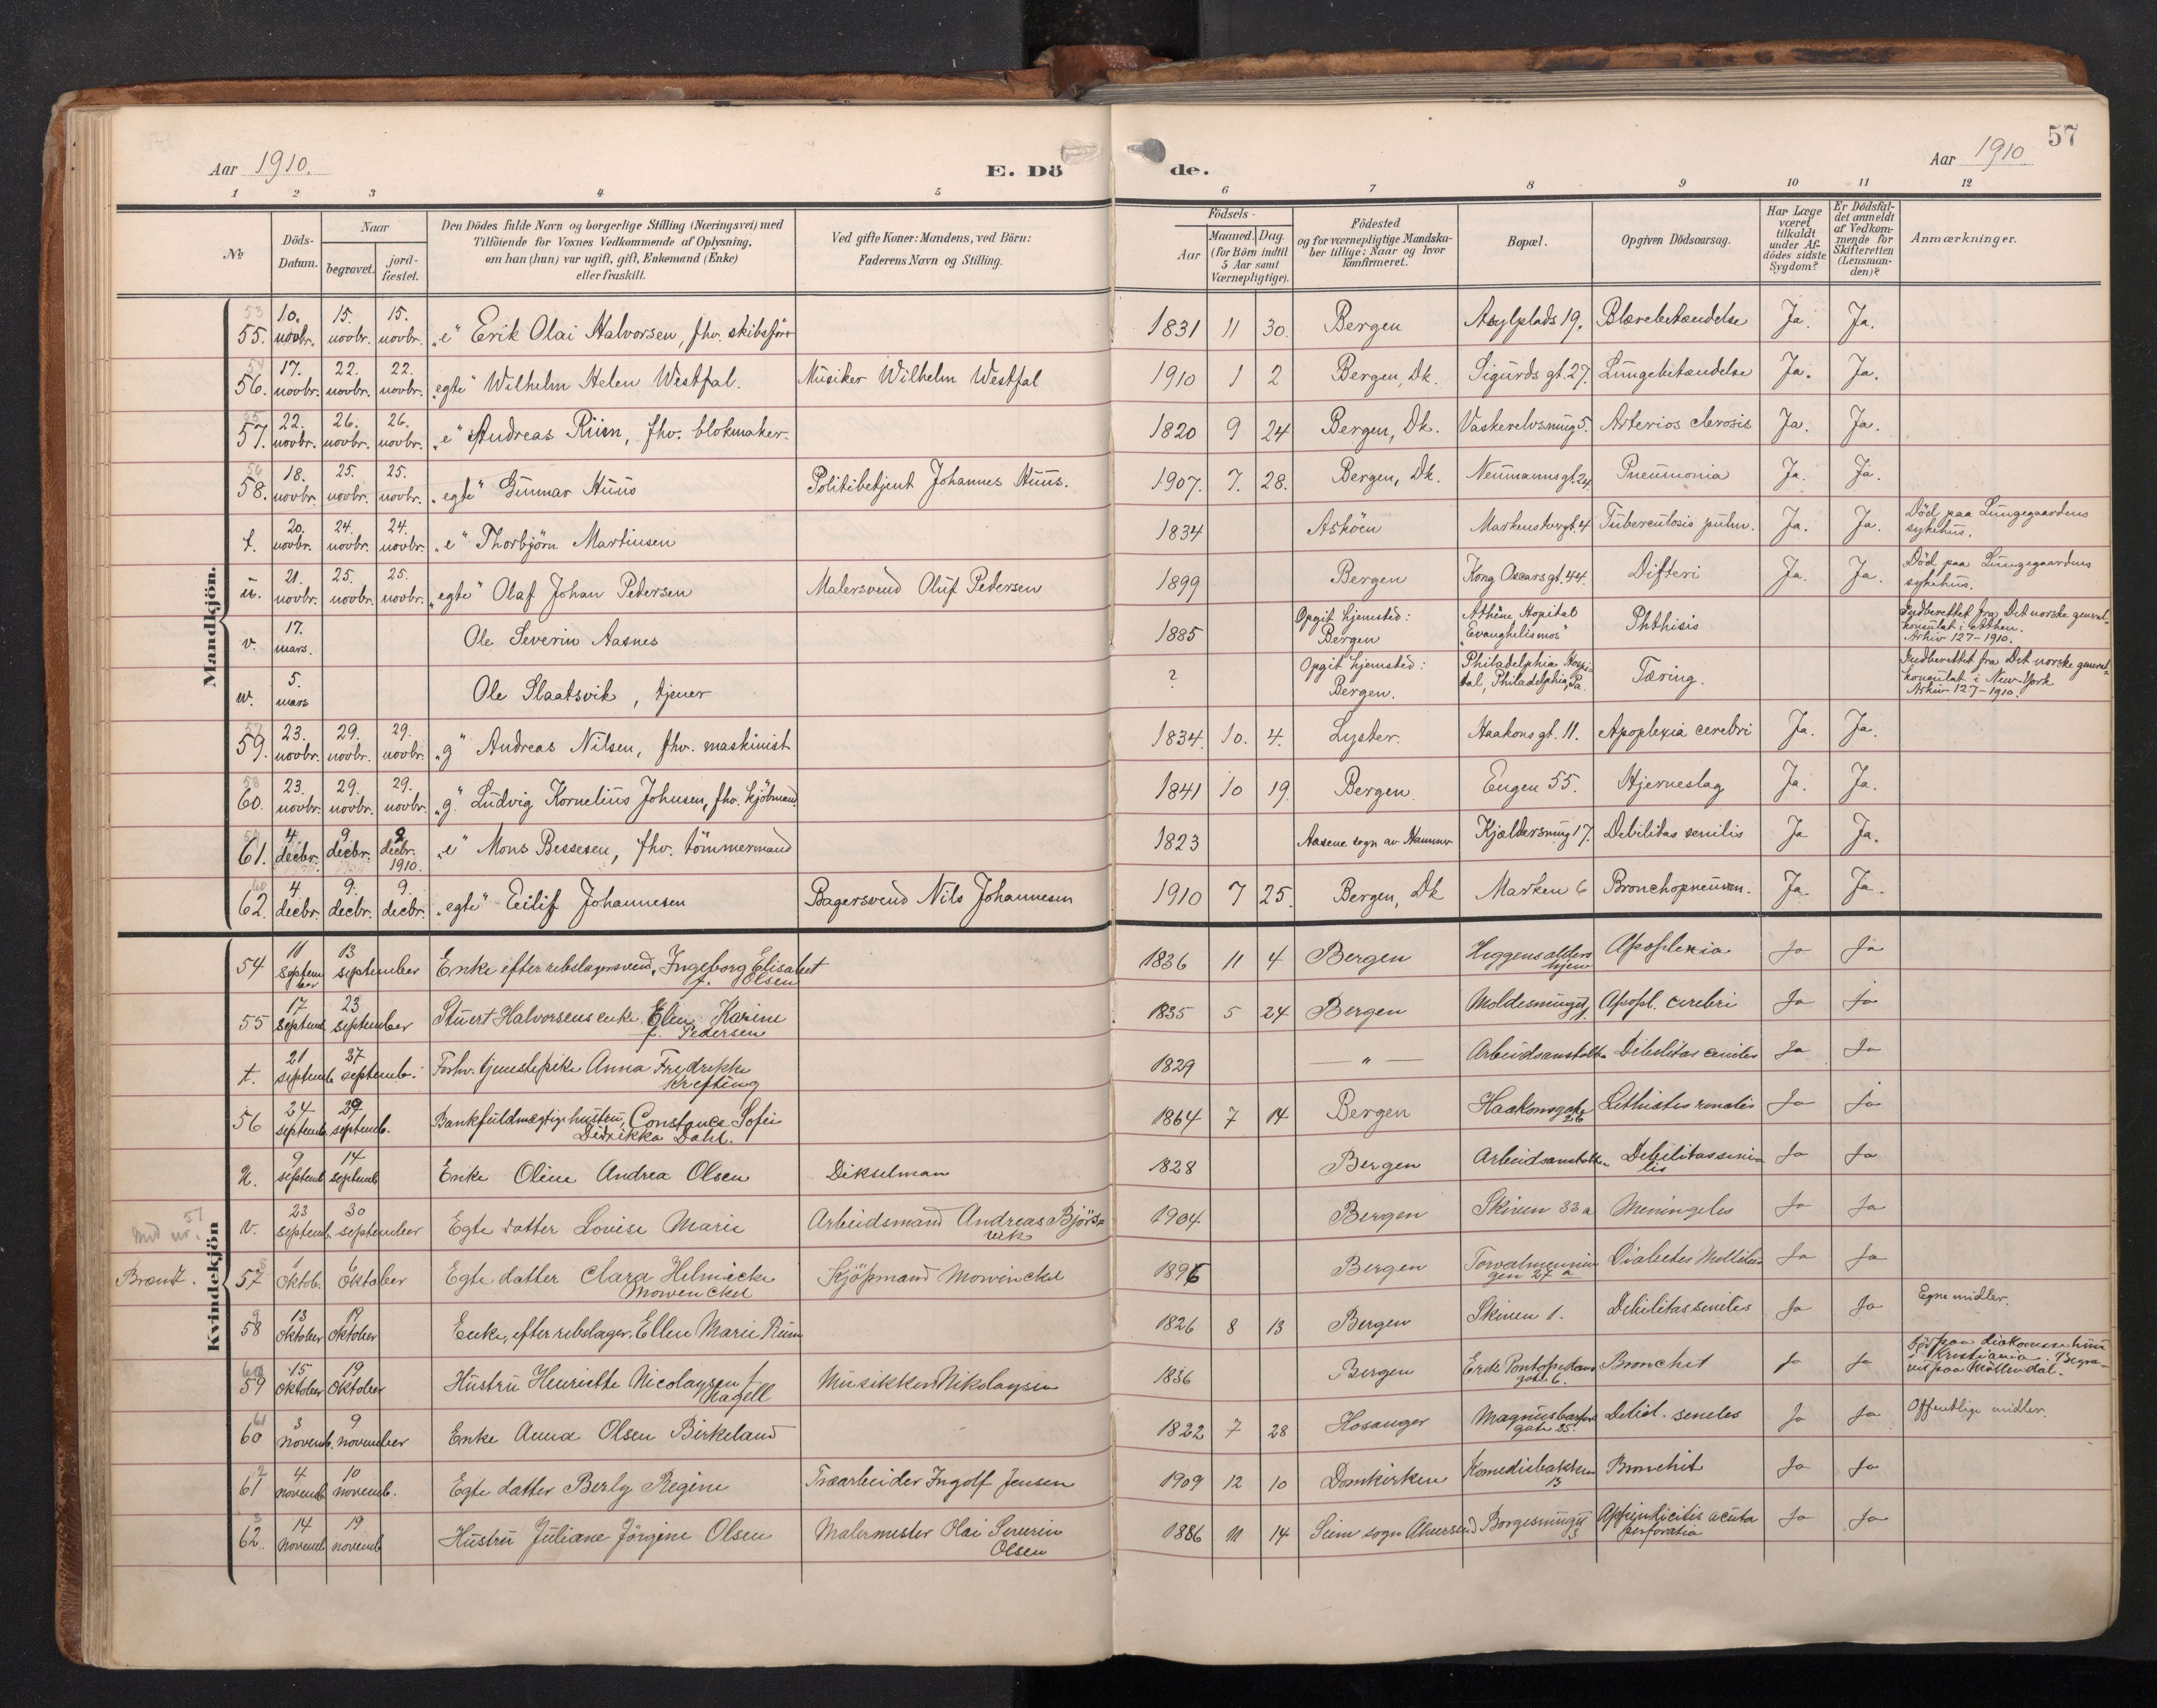 57
Aar 1910.
E. Dö
de.
Aar 1910
1 2 3 4 5 6 7 8 9 10 11 12
No
Döds-Datum.
Naar
begravet.
jord-fæstet.
Den Dödes fulde Navn og borgerlige Stilling (Næringsvei) med
Tilföiende for Voxnes Vedkommende af Oplysning,
om han (hun) var ugift, gift, Enkemand (Enke)
eller fraskilt.
Ved gifte Koner: Mandens, ved Börn:
Faderens Navn og Stilling.
Födsels-
Aar
Maaned. Dag.
(for Börn indtil
5 Aar samt
Værnepligtige).
Födested
og for værnepligtige Mandska-
ber tillige: Naar og hvor
konfirmeret.
Bopæl.
Opgiven Dödsaarsag.
Har Læge
været
tilkaldt
under Af-
dödes sidste
Sygdom?
Er Dödsfal-
det anmeldt
af Vedkom-
mende for
Skifteretten
(Lensman-
den)?
Anmærkninger.
Mandkjön.
53 55. 10. novbr. 15. novbr. 15. novbr. „e" Erik Olai Halvorsen, fhv. skibsförer 1831 11 30. Bergen Asylplads 19. Blærebetændelse Ja. Ja.
54 56. 17. novbr. 22. novbr. 22. novbr. „egte" Wilhelm Helen Westfal. Musiker Wilhelm Westfal 1910 1 2 Bergen, Dk. Sigurds gt. 27. Lungebetændelse Ja. Ja.
55 57. 22. novbr. 26. novbr. 26. novbr. „e" Andreas Riim, fhv. blokmaker. 1820 9 24 Bergen, Dk. Vaskerelvsmug 5. Arterios clerosis Ja. Ja.
56 58. 18. novbr. 25. novbr. 25. novbr. „egte" Gunnar Huus Politibetjent Johannes Huus. 1907. 7. 28. Bergen, Dk. Neumannsgt. 24. Pneumonia Ja. Ja.
t. 20. novbr. 24. novbr. 24. novbr. „e" Thorbjörn Martinsen 1834 Asköen 4 Tuberculosis pulm. Ja. Ja. Död paa Lungegaardens
sykehus.
u. 21. novbr. 25. novbr. 25. novbr. „egte" Olaf Johan Pedersen Malersvend Oluf Pedersen 1899 Bergen Kong Oscarsgt. 44. Difteri Ja. Ja. Död paa Lungegaardens
sykehus.
v. 17. mars. Ole Severin Aasnes 1885 Opgit hjemsted: Bergen Athêne Hopital „Evanghelismos" Phthisis Indberettet fra Det norske general-
konsulat i Athen.
Arkiv 127-1910.
w. 5. mars Ole Slaatsvik, tjener ? Opgit hjemsted: Bergen. Philadelphia Hospi-tal, Philadelphia, Pa. Tæring. Indberettet fra Det norske general-
konsulat i New-York
Arkiv 127-1910.
57 59. 23. novbr. 29. novbr. 29. novbr. „g" Andreas Nilsen, fhv. maskinist 1834. 10. 4. Lyster. Haakons gt. 11. Apoplexia cerebri Ja. Ja.
58 60. 23. novbr. 29. novbr. 29. novbr. „g." Ludvig Kornelius Johnsen, fhv. kjöbmand 1841 10 19. Bergen. Engen 55. Hjerneslag Ja. Ja.
61. 4. decbr. 9 decbr. 9 decbr. 1910. „e" Mons Bessesen, fhv. tömmermand 1823 Aasene sogn av Hammer Kjældersmug 17. Debilitas senilis Ja Ja.
60 62. 4 decbr. 9. decbr. 9. decbr. „egte" Eilif Johannesen Bagersvend Nils Johannesen 1910 7 25. Bergen, Dk Marken 6 Bronchopneumon. Ja. Ja.
Kvindekjön
54 11 september 13 september Enke efter rebslagersvend, Ingeborg Elisabet
f. Olsen 1836 11 4 Bergen hjem Apoplexia Ja Ja
55 17 septemb. 23 september Stuert Halvorsens enke Elen Karine
f. Pedersen 1835 5 24 Bergen Moldesmuget 1. Apopl. cerebri Ja Ja
t. 21 septemb. 27 septemb. Forhv. tjenestepike Anna Fredrikke
Krefting 1829 — " — Arbeidsanstalten Debilitas senilis Ja Ja
56 24 septemb. 29 septemb. Bankfuldmægtigs hustru, Constance Sofie
Didrikka Dahl. 1864 7 14 Bergen Haakonsgate 26 Lithistis renalis Ja Ja
u. 9 septemb. 14 septemb Enke Oline Andrea Olsen Dikselman 1828 Bergen Arbeidsanstalten Debilitas seni-
lis Ja Ja
Med nr. 57 v. 23 septemb. 30 september Egte datter Lovise Marie Arbeidsmand Andreas Björs-
vik 1904 Bergen Skiven 33a Ja Ja
Brandt. 57 8 1 oktob. 6 oktober Egte datter Clara Helmicke
Mowinckel Kjöpmand Mowinckel 1896 Bergen Torvalmenningen 27 a Diabetes Mellitus Ja Ja
58 9 13 oktober 19 oktober Enke, efter rebslager. Ellen Marie Riim 1826 8 13 Bergen Skiven 1. Debilitas senilis Ja Ja Egne midler.
59 60 15 oktober 19 oktober Hustru Henriette Nicolaysen f.
Nagell Musikker Nikolaysen 1836 Bergen Erik Pontopidans gate 6. Bronchit Ja Ja Död paa diakonissehus
i Kristiania. Begra-
vet paa Möllendal.
60 61 3 novemb. 9 november Enke Anna Olsen Birkeland 1822 7 28 Hosanger Magnus Barfots gate 25. Debil. seneles Ja Ja Offentlige midler.
61 2 4 novemb. 10 novemb. Egte datter Berly Regine Træarbeider Ingolf Jensen 1909 12 10 Domkirken Komediebakken 13 Bronchit Ja Ja
62. 3 14 novemb 19 novemb Hustru Juliane Jörgine Olsen Malermester Olai Severin
Olsen 1886 11 14 Seim sogn Alversund 3 Appendicitis acuta
perforatia Ja Ja